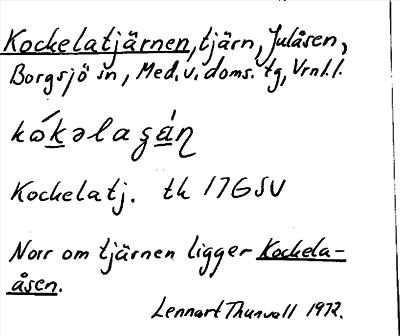 Kockelatjärnen, tjärn, Julåsen,
Borgsjö sn, Med. v. doms. tg, Vrnl. l.
kókəlaʂán
Kockelatj. tk 17G SV
Norr om tjärnen ligger Kockela-
åsen.
Lennart Thunvall 1972.